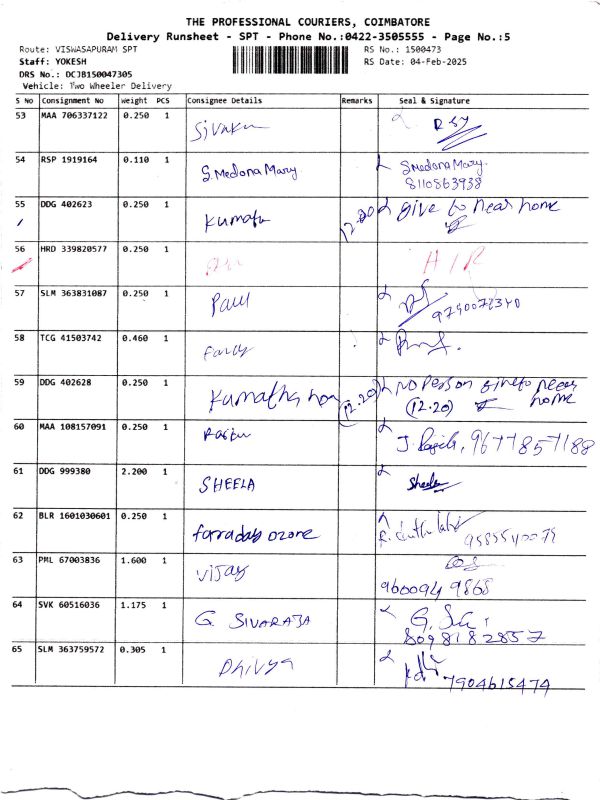 THE PROFESSIONAL COURIERS, COIMBATORE
Delivery Runsheet - SPT - Phone No.:0422-3505555 - Page No.:5
Route: VISWASAPURAM SPT RS No.: 1500473
Staff: YOKESH RS Date: 04-Feb-2025
DRS No.: DCJB150047305
Vehicle: Two Wheeler Delivery
S No Consignment No Weight PCS Consignee Details Remarks Seal & Signature
53 MAA 706337122 0.250 1 Sivaku
54 RSP 1919164 0.110 1 S.Medona Mary S Medona Mary.
8110563938
55 DDG 402623 0.250 1 Kumatu 12.20 give to near home
56 HRD 339820577 0.250 1 A/R
57 SLM 363831087 0.250 1 Paul
58 TCG 41503742 0.460 1
59 DDG 402628 0.250 1 (12.20) NO Person give to near
(12.20) home
60 MAA 108157091 0.250 1 9677857188
61 DDG 999380 2.200 1 SHEELA Sheela
62 BLR 1601030601 0.250 1 farraday ozone
63 PML 67003836 1.600 1 Vijay
9600949868
64 SVK 60516036 1.175 1 G. SIVARAJA
8098182857
65 SLM 363759572 0.305 1 Dhivya 7904615474